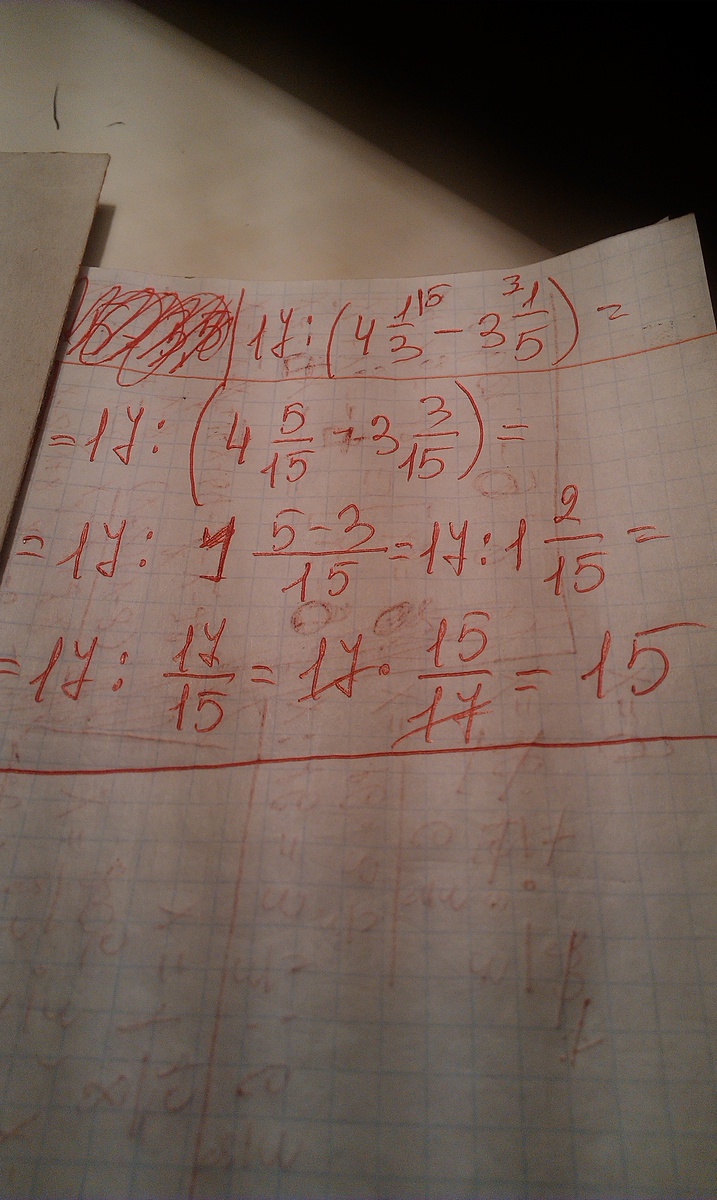 17 : (4 1/3 |5 − 3 3| 1/5) =
= 17 : (4 5/15 − 3 3/15) =
= 17 : 1 5−3/15 = 17 : 1 2/15 =
= 17 : 17/15 = 17 · 15/17 = 15